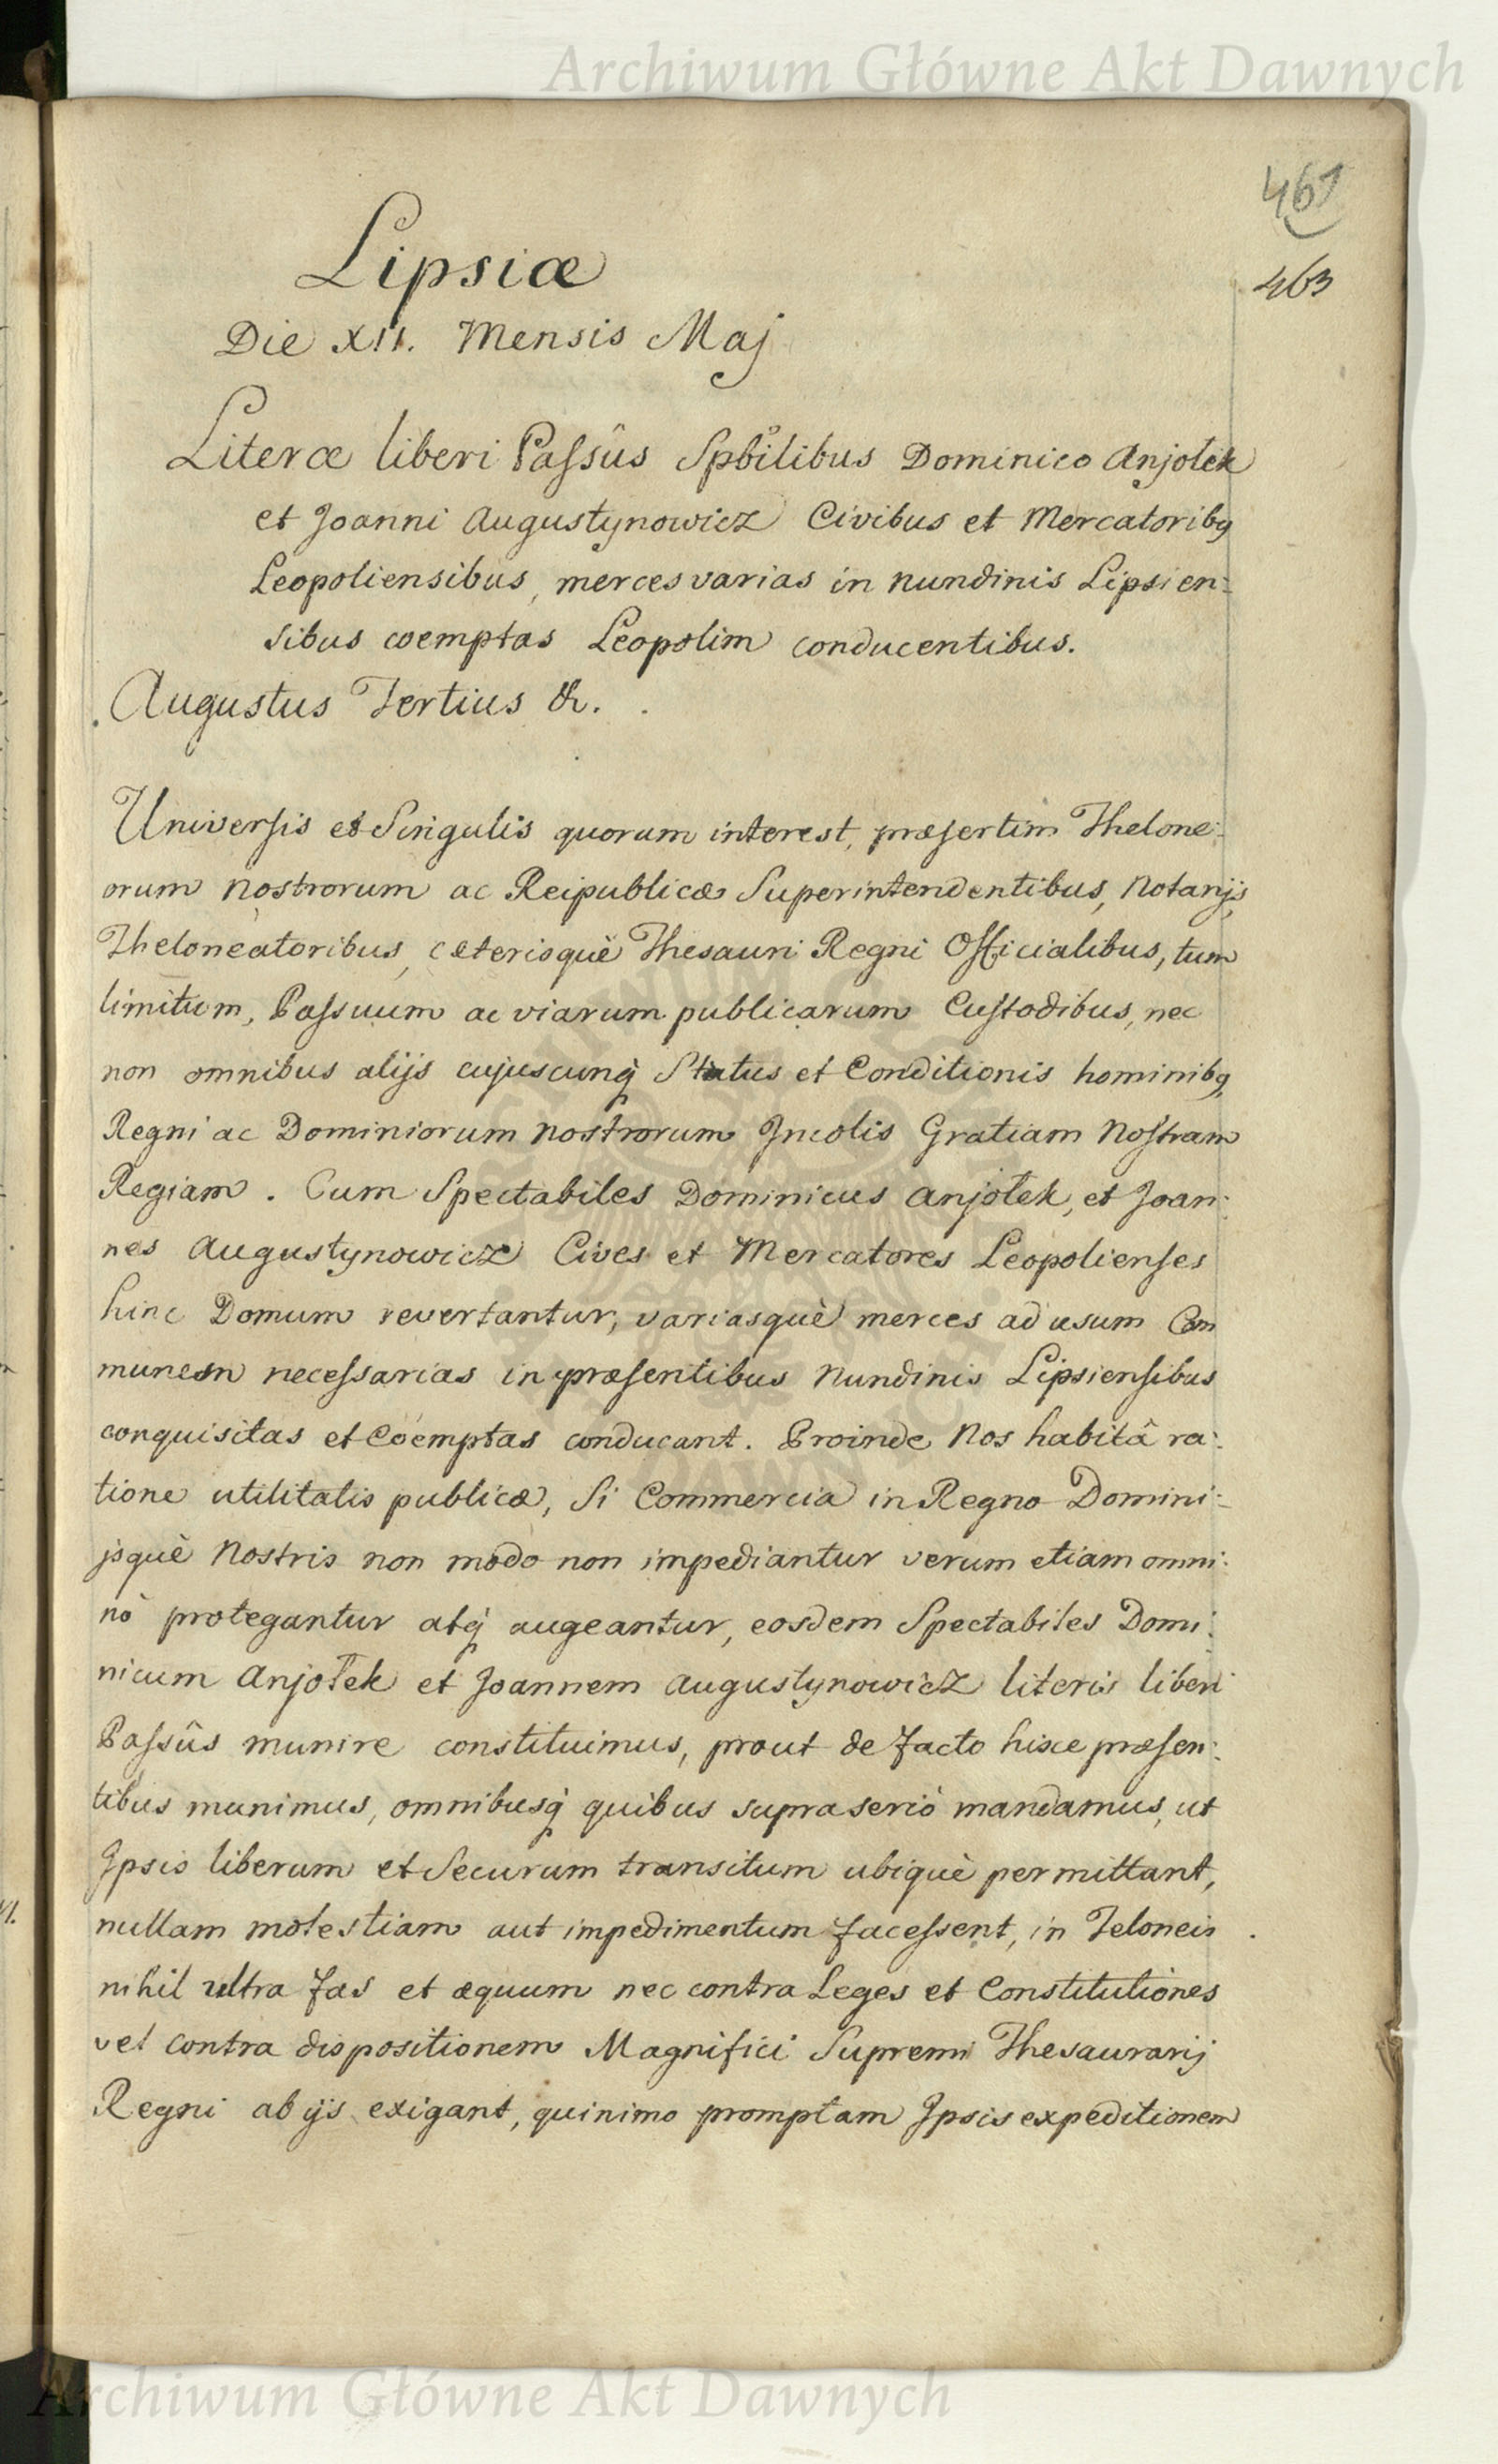 Archiwum Główne Akt Dawnych
461
463
Lipsiæ
Die XII. Mensis Maj
Literæ liberi Passûs Spbilibus Dominico Anjołek
et Joanni Augustynowicz Civibus et Mercatoribq
Leopoliensibus, merces varias in nundinis Lipsien:
sibus coemptas Leopolim conducentibus.
Augustus Tertius &c.
Universis et Singulis quorum interest, præsertim Thelone:
orum nostrorum ac Reipublicæ Superintendentibus, Notarijs,
Theloneatoribus, cæterisquè Thesauri Regni Officialibus, tum
limitum, Passuum ac viarum publicarum Custodibus, nec
non omnibus alijs cujuscunq Status et Conditionis hominibq
Regni ac Dominiorum nostrorum Incolis Gratiam Nostram
Regiam. Cum Spectabiles Dominicus Anjołek, et Joan:
nes Augustynowicz Cives et Mercatores Leopolienses
hinc Domum revertantur, variasquè merces ad usum Com
munem necessarias in præsentibus Nundinis Lipsiensibus
conquisitas et Coemptas conducant. Proinde Nos habitâ ra:
tione utilitatis publicæ, Si Commercia in Regno Domini:
jsquè Nostris non modo non impediantur verum etiam omni:
nò protegantur atq augeantur, eosdem Spectabiles Domi:
nicum Anjołek et Joannem Augustynowicz literis liberi
Passûs munire constituimus, prout de facto hisce præsen:
tibus munimus, omnibusq quibus supra seriò mandamus, ut
Ipsis liberum et Securum transitum ubiquè permittant,
nullam molestiam aut impedimentum facessent, in Teloneis
nihil ultra fas et æquum nec contra Leges et Constitutiones
vel contra dispositionem Magnifici Supremi Thesaurarij
Regni ab ijs exigant, quinimo promptam Ipsis expeditionem
Archiwum Główne Akt Dawnych